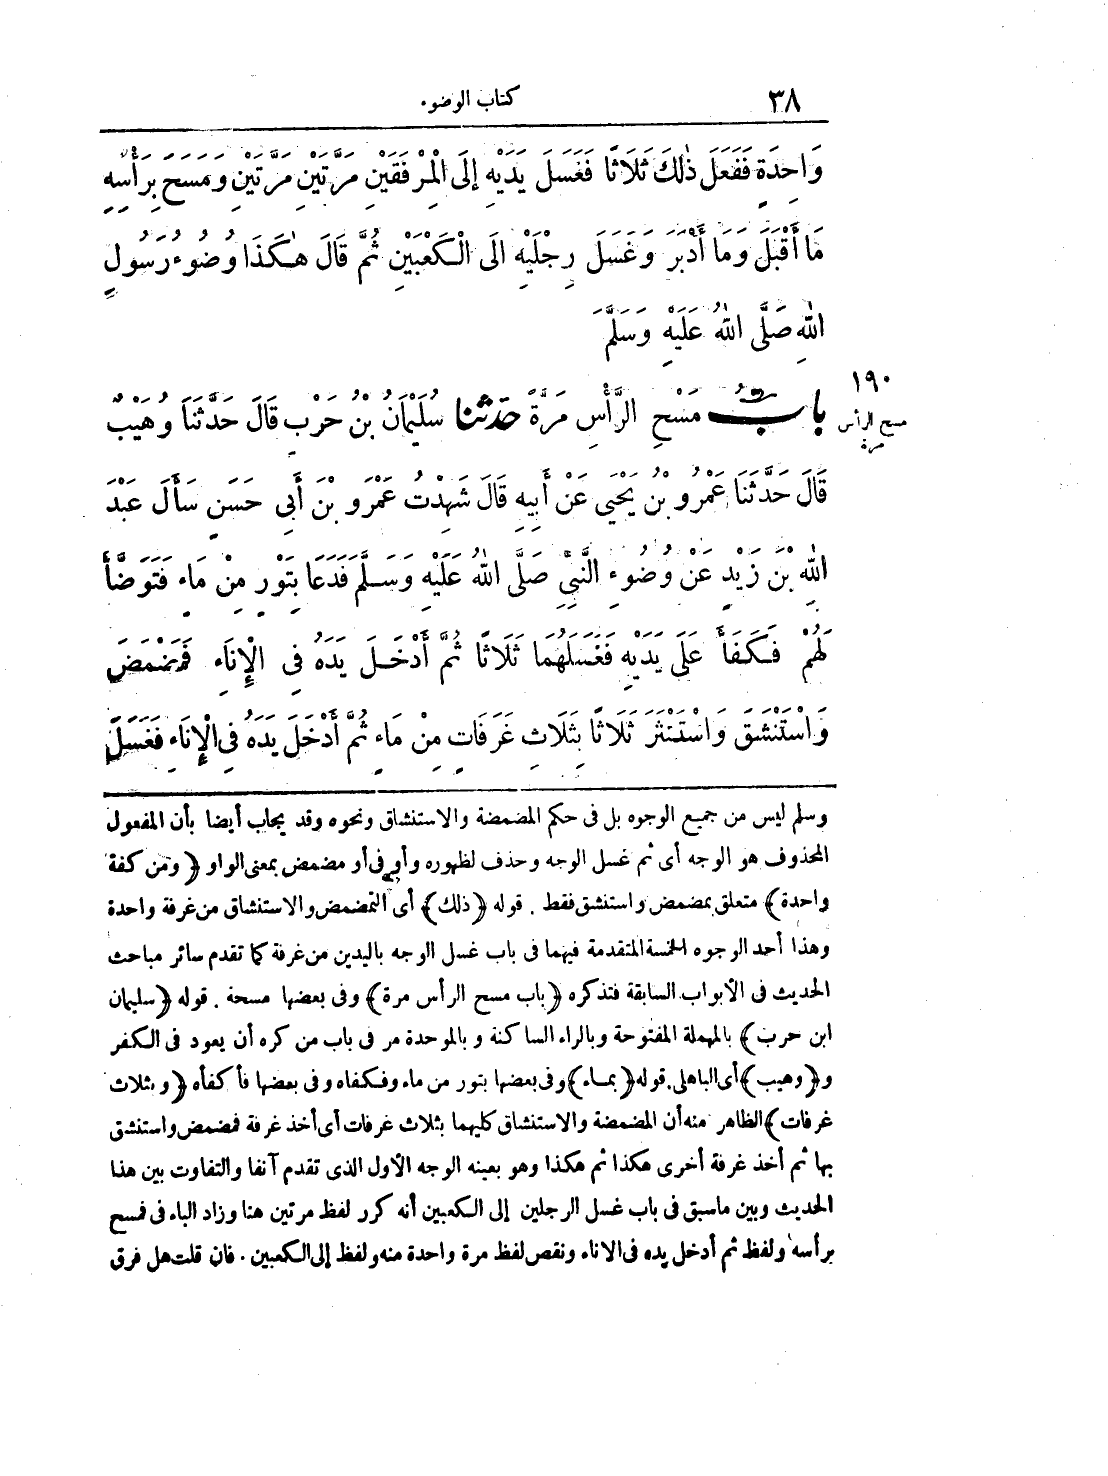 ٣٨ كتاب الوضوء
وَاحِدَةٍ فَفَعَلَ ذٰلِكَ ثَلَاثًا فَغَسَلَ يَدَيْهِ إِلَى الْمِرْفَقَيْنِ مَرَّتَيْنِ مَرَّتَيْنِ وَمَسَحَ بِرَأْسِهِ
مَا أَقْبَلَ وَمَا أَدْبَرَ وَغَسَلَ رِجْلَيْهِ الَى الْكَعْبَيْنِ ثُمَّ قَالَ هٰكَذَا وُضُوءُ رَسُولِ
اللهِ صَلَّى اللهُ عَلَيْهِ وَسَلَّمَ
١٩٠
مسح الرأس
مرة
بابُ مَسْحِ الرَّأْسِ مَرَّةً حَدَّثَنَا سُلَيْمَانُ بْنُ حَرْبٍ قَالَ حَدَّثَنَا وُهَيْبٌ
قَالَ حَدَّثَنَا عَمْرُو بْنُ يَحْيَى عَنْ أَبِيهِ قَالَ شَهِدْتُ عَمْرَو بْنَ أَبِي حَسَنٍ سَأَلَ عَبْدَ
اللهِ بْنَ زَيْدٍ عَنْ وُضُوءِ النَّبِيِّ صَلَّى اللهُ عَلَيْهِ وَسَلَّمَ فَدَعَا بِتَوْرٍ مِنْ مَاءٍ فَتَوَضَّأَ
لَهُمْ فَكَفَأَ عَلَى يَدَيْهِ فَغَسَلَهُمَا ثَلَاثًا ثُمَّ أَدْخَلَ يَدَهُ فِى الْإِنَاءِ فَمَضْمَضَ
وَاسْتَنْشَقَ وَاسْتَنْثَرَ ثَلَاثًا بِثَلَاثِ غَرَفَاتٍ مِنْ مَاءٍ ثُمَّ أَدْخَلَ يَدَهُ فِى الْإِنَاءِ فَغَسَلَ
وسلم ليس من جميع الوجوه بل فى حكم المضمضة والاستنشاق ونحوه وقد يجاب أيضا بأن المفعول
المحذوف هو الوجه أى ثم غسل الوجه وحذف لظهوره وأو فى أو مضمض بمعنى الواو ﴿ومن كفة
واحدة﴾ متعلق بمضمض واستنشق فقط . قوله ﴿ذلك﴾ أى التمضمض والاستنشاق من غرفة واحدة
وهذا أحد الوجوه الخمسة المتقدمة فيهما فى باب غسل الوجه باليدين من غرفة كما تقدم سائر مباحث
الحديث فى الأبواب السابقة فتذكره ﴿باب مسح الرأس مرة﴾ وفى بعضها مسحة . قوله ﴿سليمان
ابن حرب﴾ بالمهملة المفتوحة وبالراء الساكنة وبالموحدة مر فى باب من كره أن يعود فى الكفر
و﴿وهيب﴾ أى الباهلى. قوله ﴿بماء﴾ وفى بعضها بتور من ماء وفكفاه وفى بعضها فأكفأه ﴿وبثلاث
غرفات﴾ الظاهر منه أن المضمضة والاستنشاق كليهما بثلاث غرفات أى أخذ غرفة فمضمض واستنشق
بها ثم أخذ غرفة أخرى هكذا ثم هكذا وهو بعينه الوجه الأول الذى تقدم آنفا والتفاوت بين هذا
الحديث وبين ماسبق فى باب غسل الرجلين إلى الكعبين أنه كرر لفظ مرتين هنا وزاد الباء فى فمسح
برأسه ولفظ ثم أدخل يده فى الاناء ونقص لفظ مرة واحدة منه ولفظ إلى الكعبين . فان قلت هل فرق